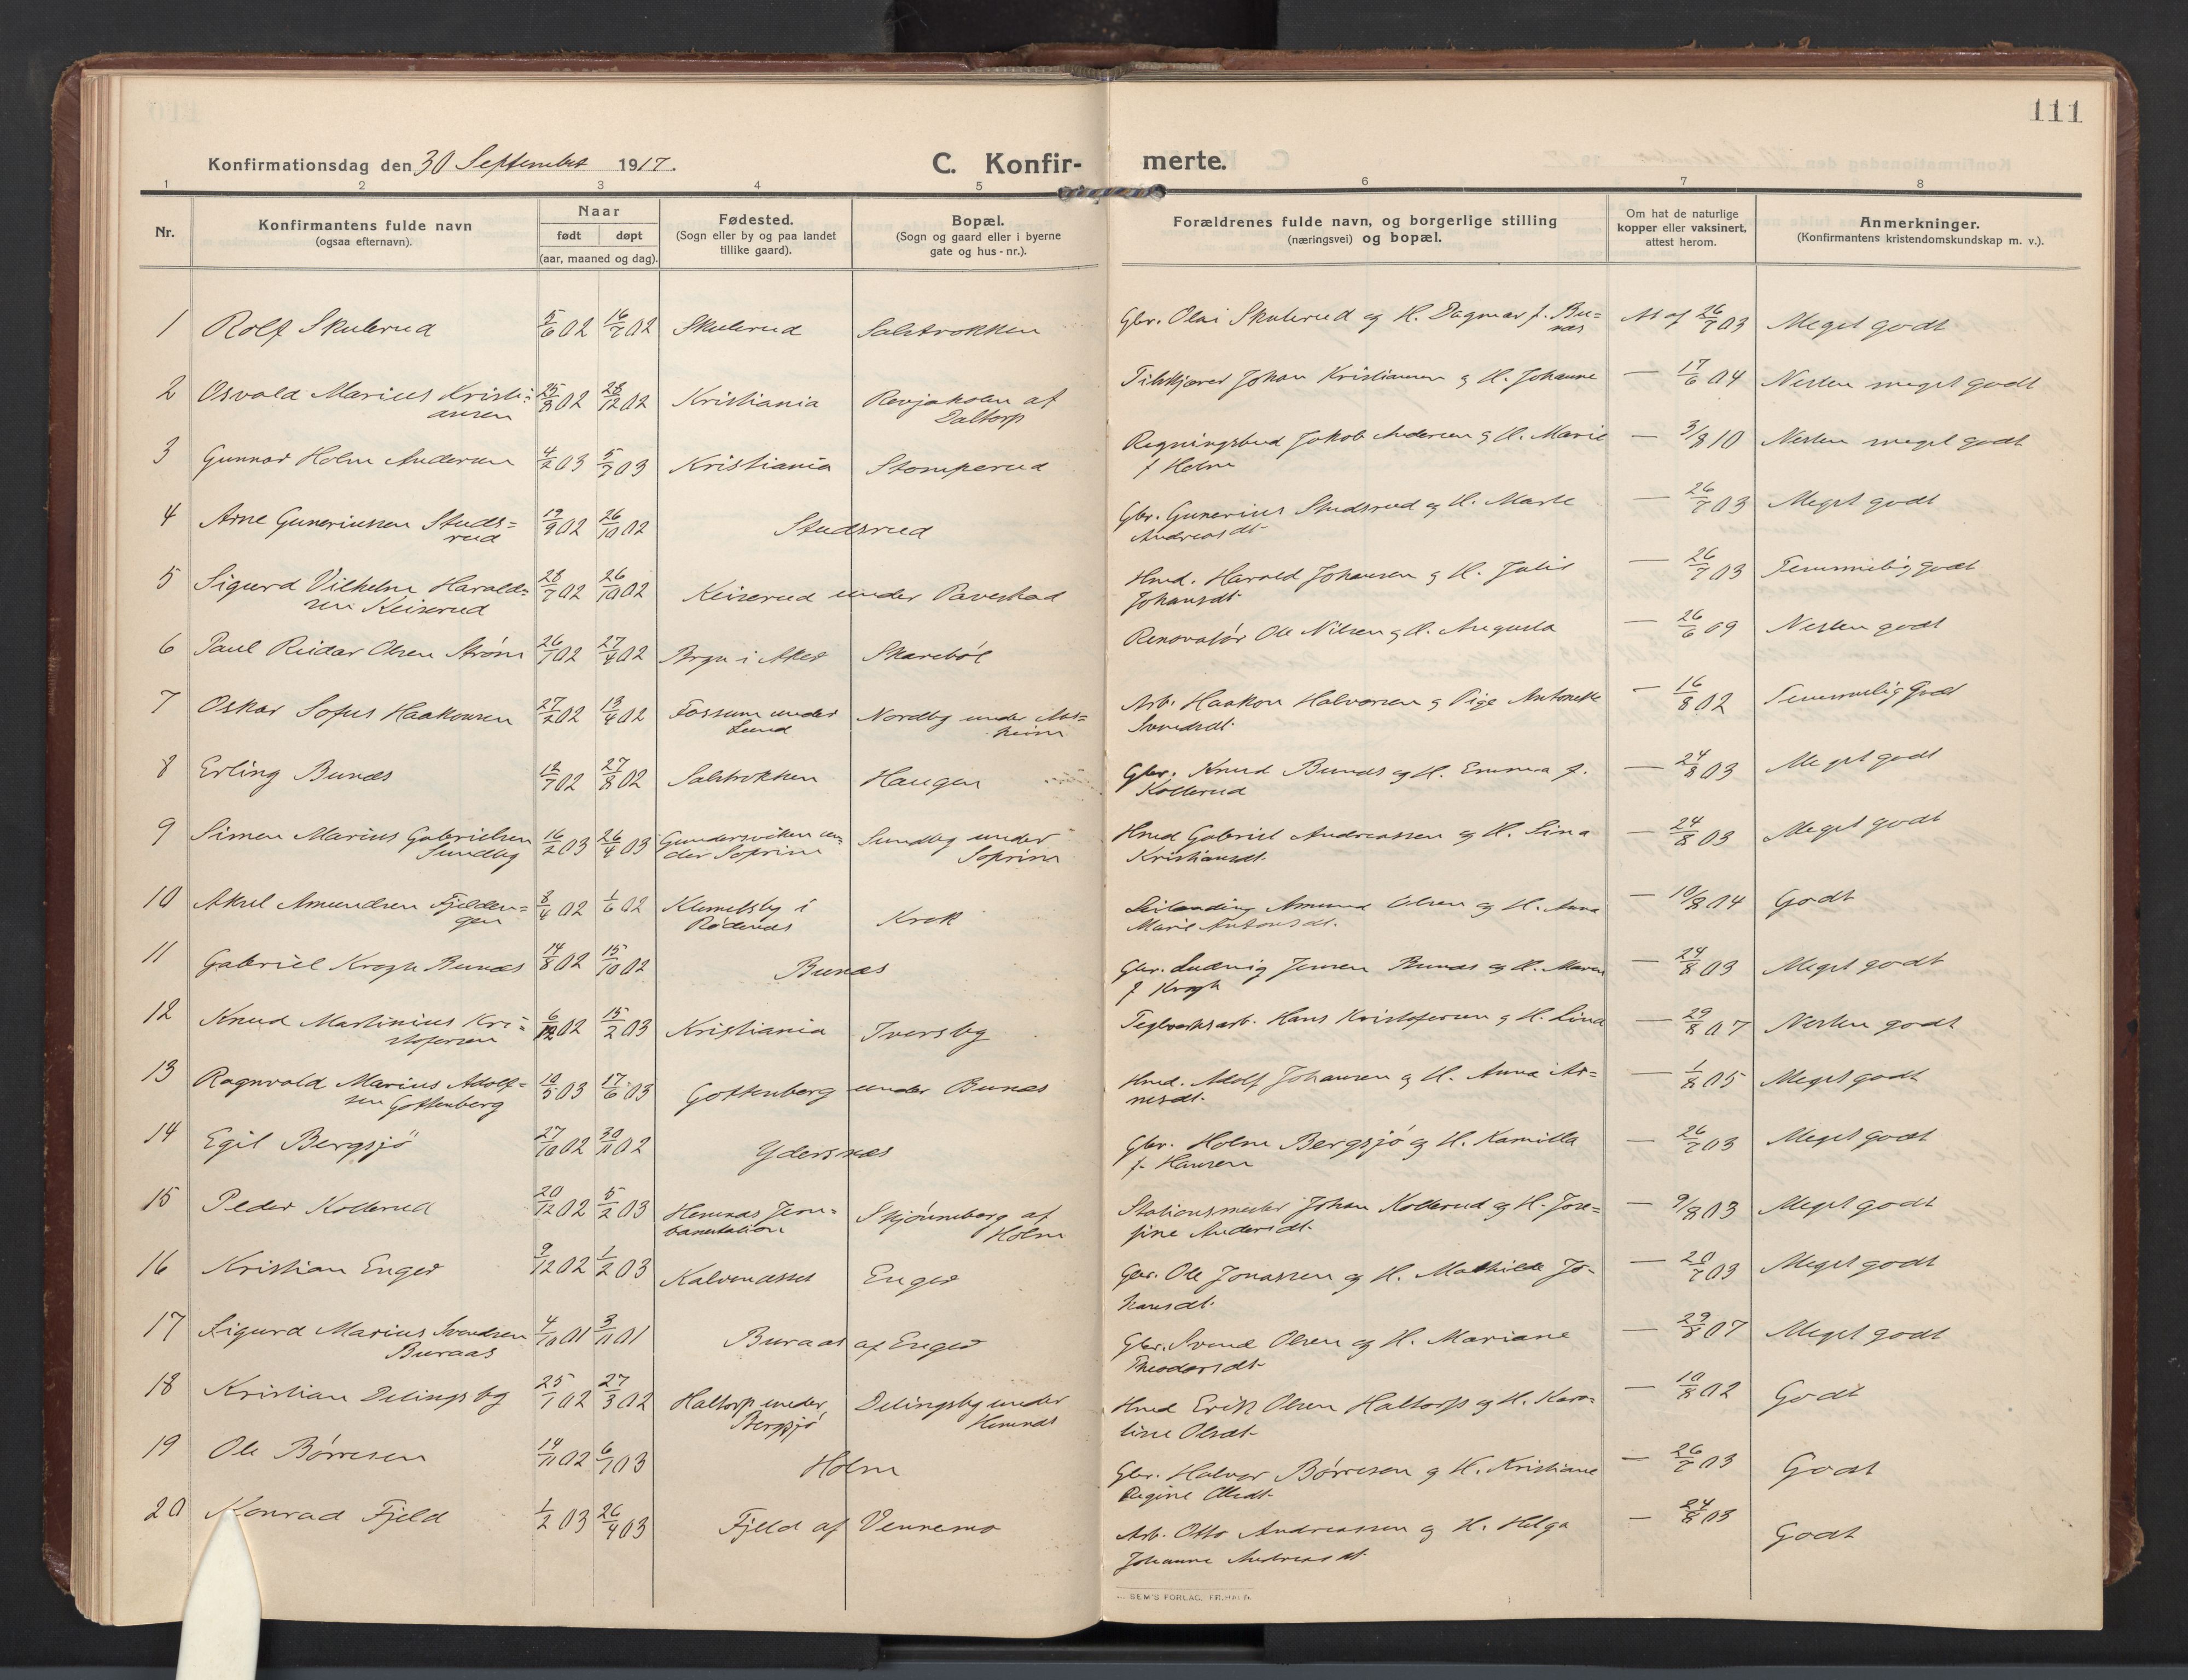 111
Konfirmationsdag den 30 September 1917.
C. Konfir- merte.
1 2 3 4 5 6 7 8
Nr.
Konfirmantens fulde navn
(ogsaa efternavn).
Naar
født døpt
(aar, maaned og dag).
Fødested.
(Sogn eller by og paa landet
tillike gaard).
Bopæl.
(Sogn og gaard eller i byerne
gate og hus-nr.).
Forældrenes fulde navn, og borgerlige stilling
(næringsvei) og bopæl.
Om hat de naturlige
kopper eller vaksinert,
attest herom.
Anmerkninger.
(Konfirmantens kristendomskundskap m. v.).
1 Rolf Skulerud 5/6 02 16/7 02 Skulerud Salstrokken Gbr. Olai Skulerud og H. Dagmar f. Bu= At af 26/7 03 Meget godt
næs
2 Osvald Marius Kristi= 25/8 02 28/12 02 Kristiania Revjakolen af Johan Kristiansen og H. Johanne — 17/6 04 Nesten meget godt
ansen Daltorp
3 Gunnar Holm Andersen 4/2 03 5/7 03 Kristiania Stomperud Regningsbud Jakob Andersen og H. Marie — 3/8 10 Nesten meget godt
f Holm
4 Arne Guneriussen Studs= 19/9 02 26/10 02 Studsrud Gbr. Gunerius Studsrud og H. Marte — 26/7 03 Meget godt
rud Andreasdt
5 Sigurd Vilhelm Harald= 28/7 02 26/10 02 Keiserud under Pavestad Hmd. Harald Johansen og H. Julie — 26/7 03 Temmelig godt
sen Keiserud Johansdt
6 Paul Reidar Olsen Strøm 26/1 02 27/4 02 Bryn i Aker Skarebøl Renovatør Ole Nilsen og H. Augusta — 26/6 09 Nesten godt
7 Oskar Sofus Haakonsen 27/2 02 13/4 02 Fossum under Nordby under Aas= Arb. Haakon Halvorsen og Pige Antonette — 16/8 02 Temmelig godt
Lund heim Svendsdt.
8 Erling Bunæs 12/7 02 27/8 02 Salstrokken Haugen Gbr. Knud Bunæs og H. Emma f. — 24/8 03 Meget godt
Kollerud
9 Simen Marius Gabrielsen 16/2 03 26/4 03 Gundersviken un= Sundby under Hmd Gabriel Andreassen og H. Lina — 24/8 03 Meget godt
Sundby der Soprim Soprim Kristiansdt.
10 Aksel Amundsen Fjelden= 8/4 02 1/6 02 Klemetsby i Krok Amund Olsen og H. Anna — 10/8 04 Godt
gen Rødenæs Marie Antonsdt.
11 Gabriel Krogh Bunæs 14/8 02 15/10 02 Bunæs Gbr. Ludvig Jensen Bunæs og H. Maren — 24/8 03 Meget godt
f Krogh
12 Knud Martinius Kri= 6/12 02 15/2 03 Kristiania Iversby Teglverksarb. Hans Kristofersen og H. Lina — 29/8 07 Nesten godt
stofersen
13 Ragnvald Marius Adolf= 10/5 03 17/6 03 Gottenberg under Bunæs Hmd. Adolf Johansen og H. Anna Ar= — 1/8 05 Meget godt
sen Gottenberg nesdt.
14 Egil Bergsjö 27/10 02 30/11 02 Ydersnæs Gbr. Holm Bergsjö og H. Kamilla — 26/7 03 Meget godt
f. Hansen
15 Peder Kollerud 20/12 02 5/2 03 Hemnæs Jern= Skjønneberg af Stationsmester Johan Kollerud og H. Jose= — 9/8 03 Meget godt
banestation Holm fine Andersdt.
16 Kristian Enger 9/12 02 1/2 03 Kalvenæsset Enger Gbr. Ole Jonassen og H. Mathilde Jo- — 20/7 03 Meget godt
hansdt.
17 Sigurd Marius Svendsen 4/10 01 3/11 01 Buraas af Enger Gbr. Svend Olsen og H. Mariane — 29/8 07 Meget godt
Buraas Theodorsdt
18 Kristian Delingsby 25/1 02 27/3 02 Haltorp under Delingsby under Hmd Erik Olsen Haltorp og H. Karo= — 10/8 02 Godt
Bergsjö Hemnæs line Olsdt
19 Ole Børresen 14/11 02 6/1 03 Holm Gbr. Halvor Børresen og H. Kristiane — 26/7 03 Godt
Regine Olsdt
20 Konrad Fjeld 1/2 03 26/4 03 Fjeld af Vennemo Arb. Otto Andreassen og H. Helga — 24/8 03 Godt
Johanne Andreasdt
SEM'S FORLAG, FR.HALD.